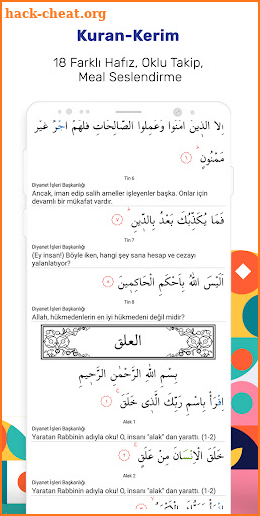 hack-cheat.org
Kuran-Kerim
18 Farklı Hafız, Oklu Takip,
Meal Seslendirme
اِلَّا الَّذ۪ينَ اٰمَنُوا وَعَمِلُوا الصَّالِحَاتِ فَلَهُمْ اَجْرٌ غَيْرُ
مَمْنُونٍ ٦
Tin 6
Diyanet İşleri Başkanlığı
Ancak, iman edip salih ameller işleyenler başka. Onlar için
devamlı bir mükafat vardır.
فَمَا يُكَذِّبُكَ بَعْدُ بِالدّ۪ينِ ٧
Tin 7
Diyanet İşleri Başkanlığı
(Ey insan!) Böyle iken, hangi şey sana hesap ve cezayı
yalanlatıyor?
اَلَيْسَ اللّٰهُ بِاَحْكَمِ الْحَاكِم۪ينَ ٨
Tin 8
Diyanet İşleri Başkanlığı
Allah, hükmedenlerin en iyi hükmedeni değil midir?
العلق
بِسْمِ اللّٰهِ الرَّحْمٰنِ الرَّح۪يمِ
اِقْرَأْ بِاسْمِ رَبِّكَ الَّذ۪ي خَلَقَ ١
Alak 1
Diyanet İşleri Başkanlığı
Yaratan Rabbinin adıyla oku! O, insanı "alak" dan yarattı. (1-2)
خَلَقَ الْاِنْسَانَ مِنْ عَلَقٍ ٢
Alak 2
Diyanet İşleri Başkanlığı
Yaratan Rabbinin adıyla oku! O, insanı "alak" dan yarattı. (1-2)